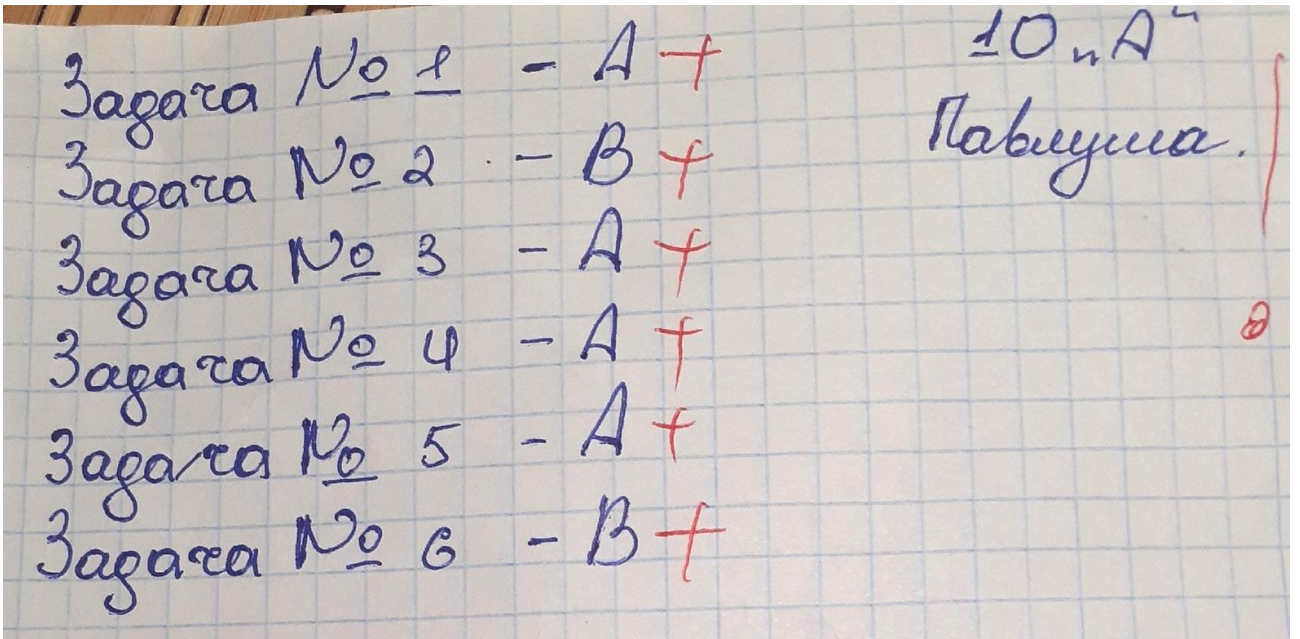 Задача № 1 - А +
Задача № 2 - В +
Задача № 3 - А +
Задача № 4 - А +
Задача № 5 - А +
Задача № 6 - В +
10 „А“
Павлуша.